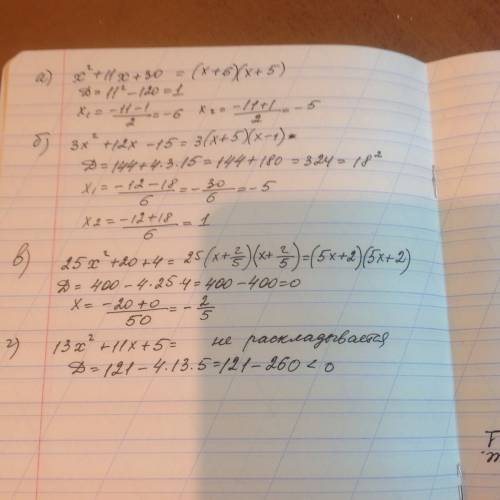 а) x² + 11x + 30 = (x+6)(x+5)
D = 11² - 120 = 1
x₁ = (-11-1)/2 = -6 x₂ = (-11+1)/2 = -5
б) 3x² + 12x - 15 = 3(x+5)(x-1)
D = 144 + 4·3·15 = 144 + 180 = 324 = 18²
x₁ = (-12-18)/6 = -30/6 = -5
x₂ = (-12+18)/6 = 1
в) 25x² + 20 + 4 = 25(x + 2/5)(x + 2/5) = (5x+2)(5x+2)
D = 400 - 4·25·4 = 400 - 400 = 0
x = (-20+0)/50 = -2/5
г) 13x² + 11x + 5 = не раскладывается
D = 121 - 4·13·5 = 121 - 260 < 0